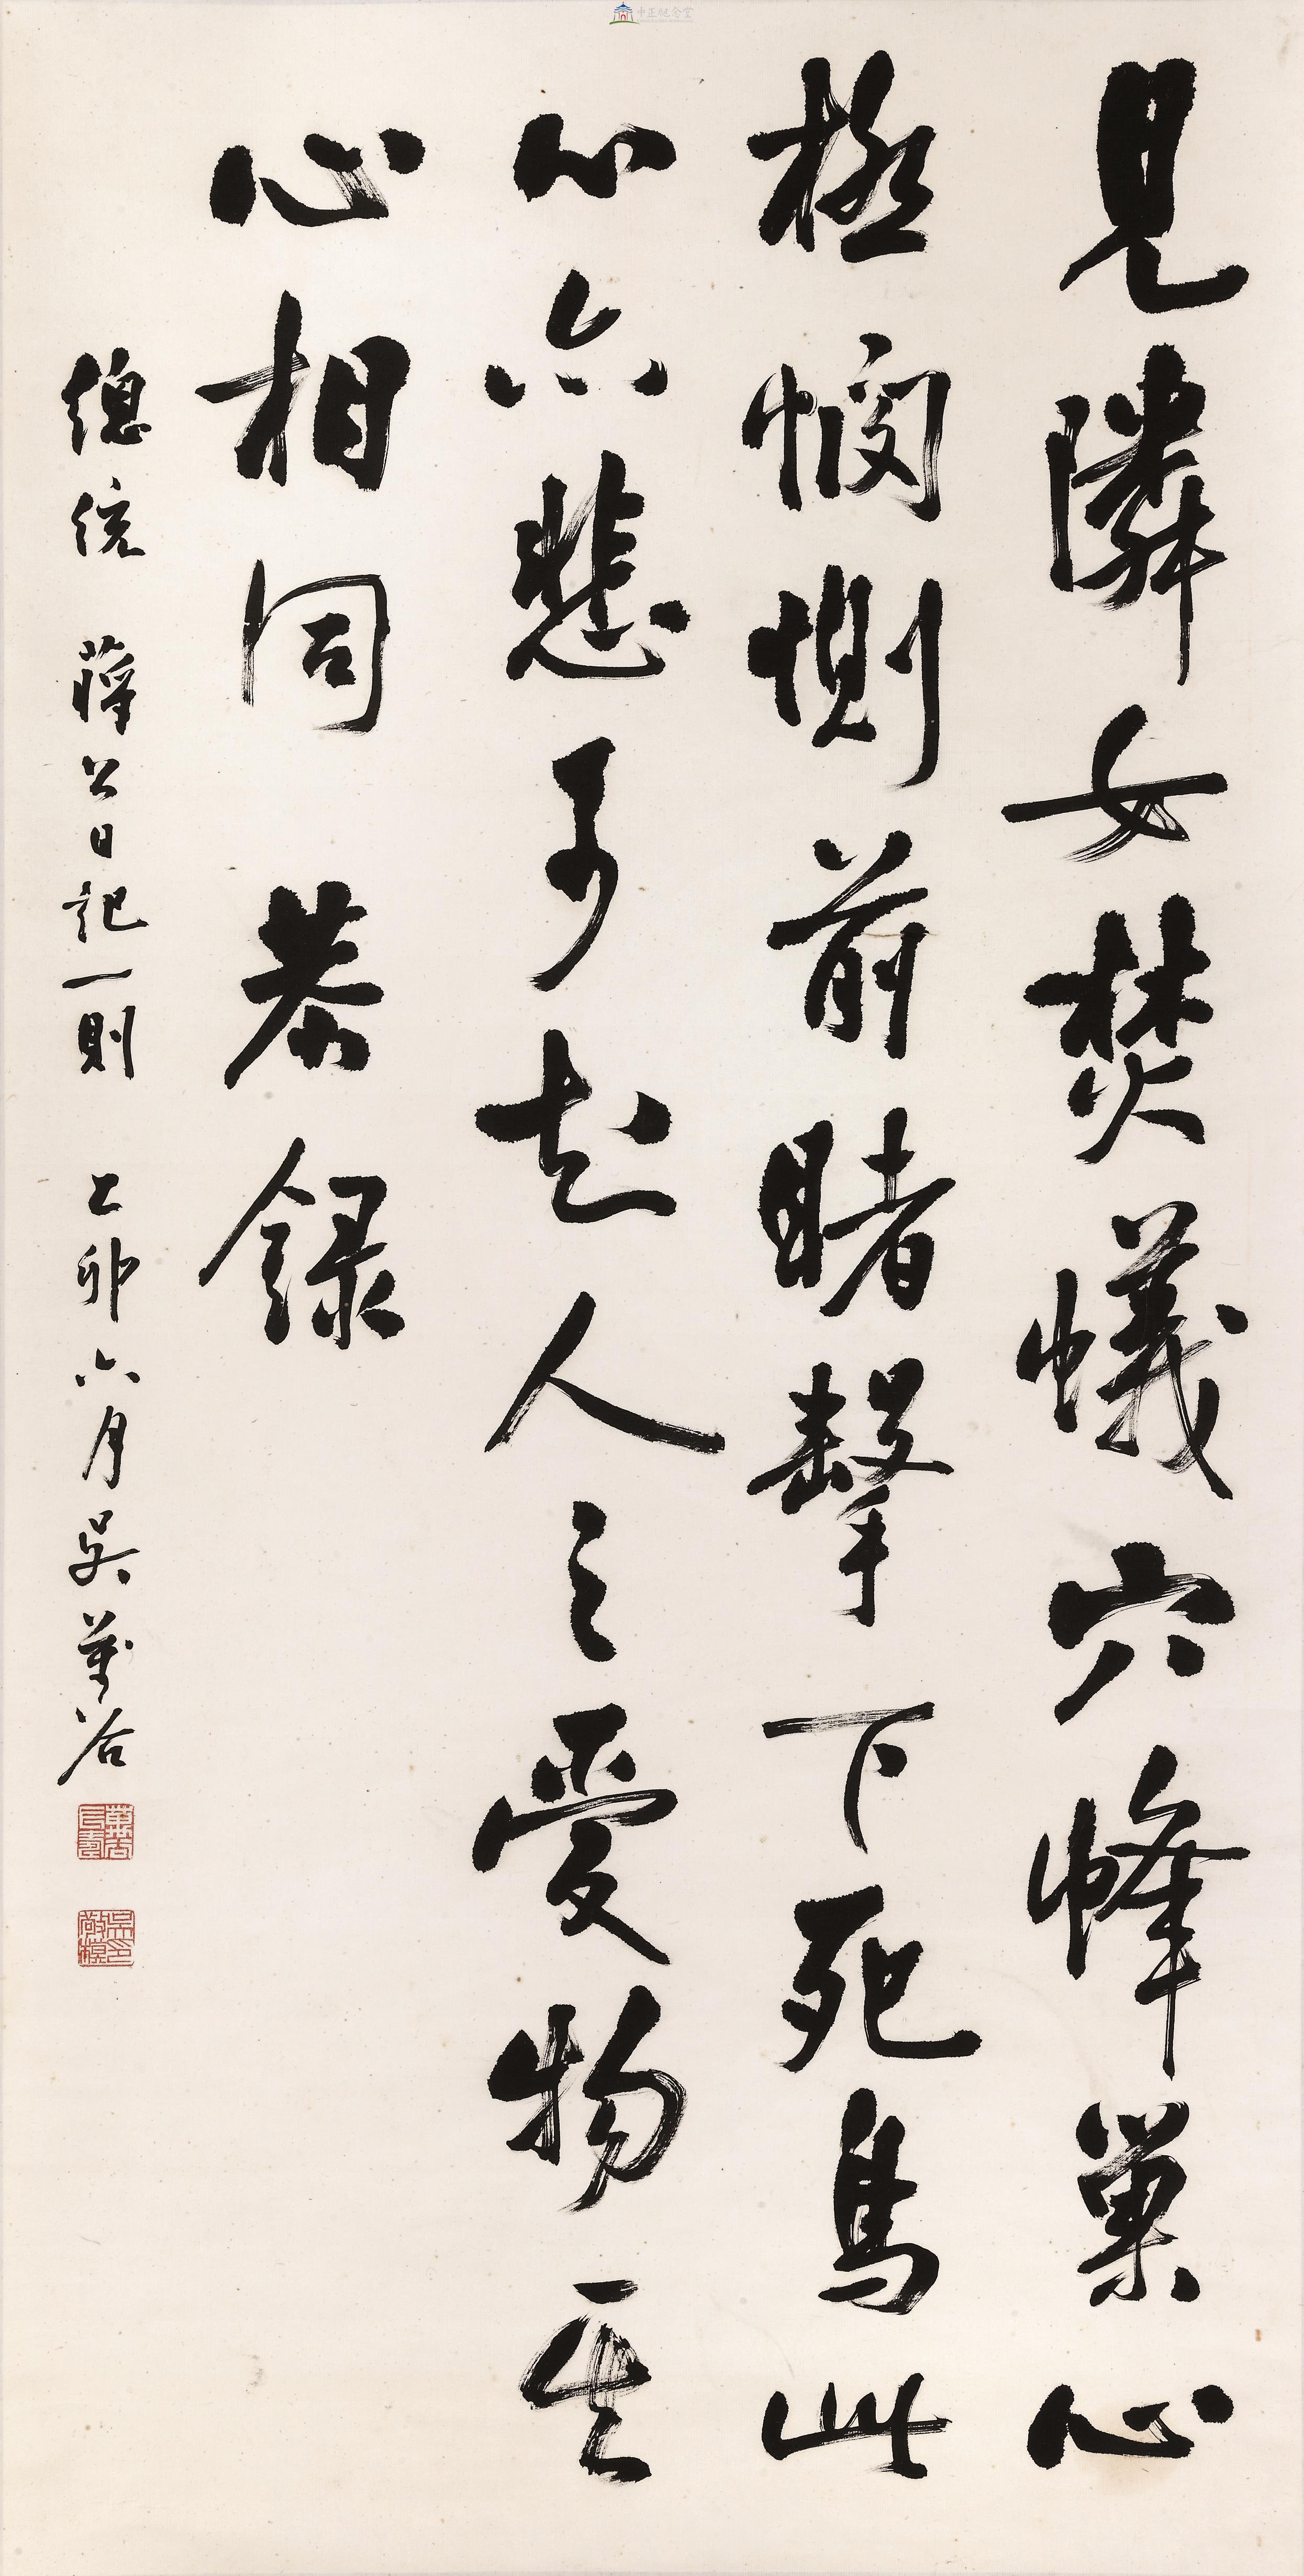 見隣女焚蟻穴蜂巢心
極憫惻前睹擊下死鳥此
心亦悲可知人之愛物其
心相同 恭錄
總統 蔣公日記一則 乙卯六月吳萬谷
中正紀念堂